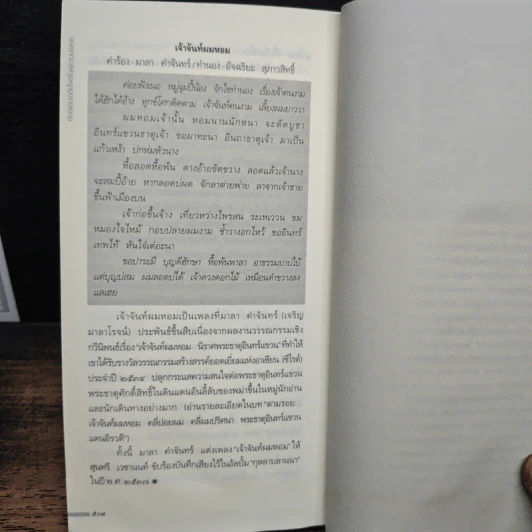 เจ้าจันท์ผมหอม
คำร้อง - มาลา คำจันทร์ / ทำนอง - อัจฉริยะ สุภาวสิทธิ์
ค่อยฟังเนอ หมู่ชุมปี้น้อง จักไขทำนอง เรื่องเจ้าคนงาม
ได้ฮักได้อ้าง ทุกข์โศกาติดตาม เจ้าจันท์คนงาม เลี้ยงผมยาววา
ผมหอมเจ้านั้น หอมนานนักหนา จะตัดบูชา
อินทร์แขวนธาตุเจ้า ขอผาทะนา อินถาธาตุเจ้า มาเป็น
แก้วเหง้า ปกห่มหัวนาง
หื้อลอดหื้อพ้น ตางอ้ายขัดขวาง ลอดแล้วเจ้านาง
จะสมปี้อ้าย หากลอดบ่ผด จักลาต่ายพ่าย ลาจากเจ้าชาย
ขึ้นฟ้าเมืองบน
เจ้าก่อขึ้นจ้าง เที่ยวหว่างไพรสน ระเหเววน ขม
หมองใจไหม้ กอบปลายผมงาม ซ้ำวางอกไหว้ ขออินทร์
เทพไท้ หันใจ๋เต๋อะนา
ขอปาระมี บุญตี้ฮักษา หื้อพ้นพาลา อาธรรมบาปใบ้
แต่บุญบ่สม ผมลอดบ่ได้ เจ้าดวงดอกไม้ เหมือนดำขวางลง
แลเฮย
เจ้าจันท์ผมหอมเป็นเพลงที่มาลา คำจันทร์ (เจริญ
มาลาโรจน์) ประพันธ์ขึ้นสืบเนื่องจากผลงานวรรณกรรมเชิง
กวีนิพนธ์เรื่อง "เจ้าจันท์ผมหอม นิราศพระธาตุอินทร์แขวน" ที่ทำให้
เขาได้รับรางวัลวรรณกรรมสร้างสรรค์ยอดเยี่ยมแห่งอาเซียน (ซีไรต์)
ประจำปี ๒๕๓๔ ปลุกกระแสความสนใจต่อพระธาตุอินทร์แขวน
พระธาตุศักดิ์สิทธิ์ในดินแดนอันลี้ลับของพม่าขึ้นในหมู่นักอ่าน
และนักเดินทางอย่างมาก (อ่านรายละเอียดในบท "ตามรอย...
เจ้าจันท์ผมหอม คลี่ปอยผม คลี่ผมปริศนา พระธาตุอินทร์แขวน
แดนอิรวดี")
ทั้งนี้ มาลา คำจันทร์ แต่งเพลง "เจ้าจันท์ผมหอม" ให้
สุนทรี เวชานนท์ ขับร้องบันทึกเสียงไว้ในอัลบั้ม "กุหลาบลานนา"
ในปี พ.ศ. ๒๕๓๗
๕๐๘